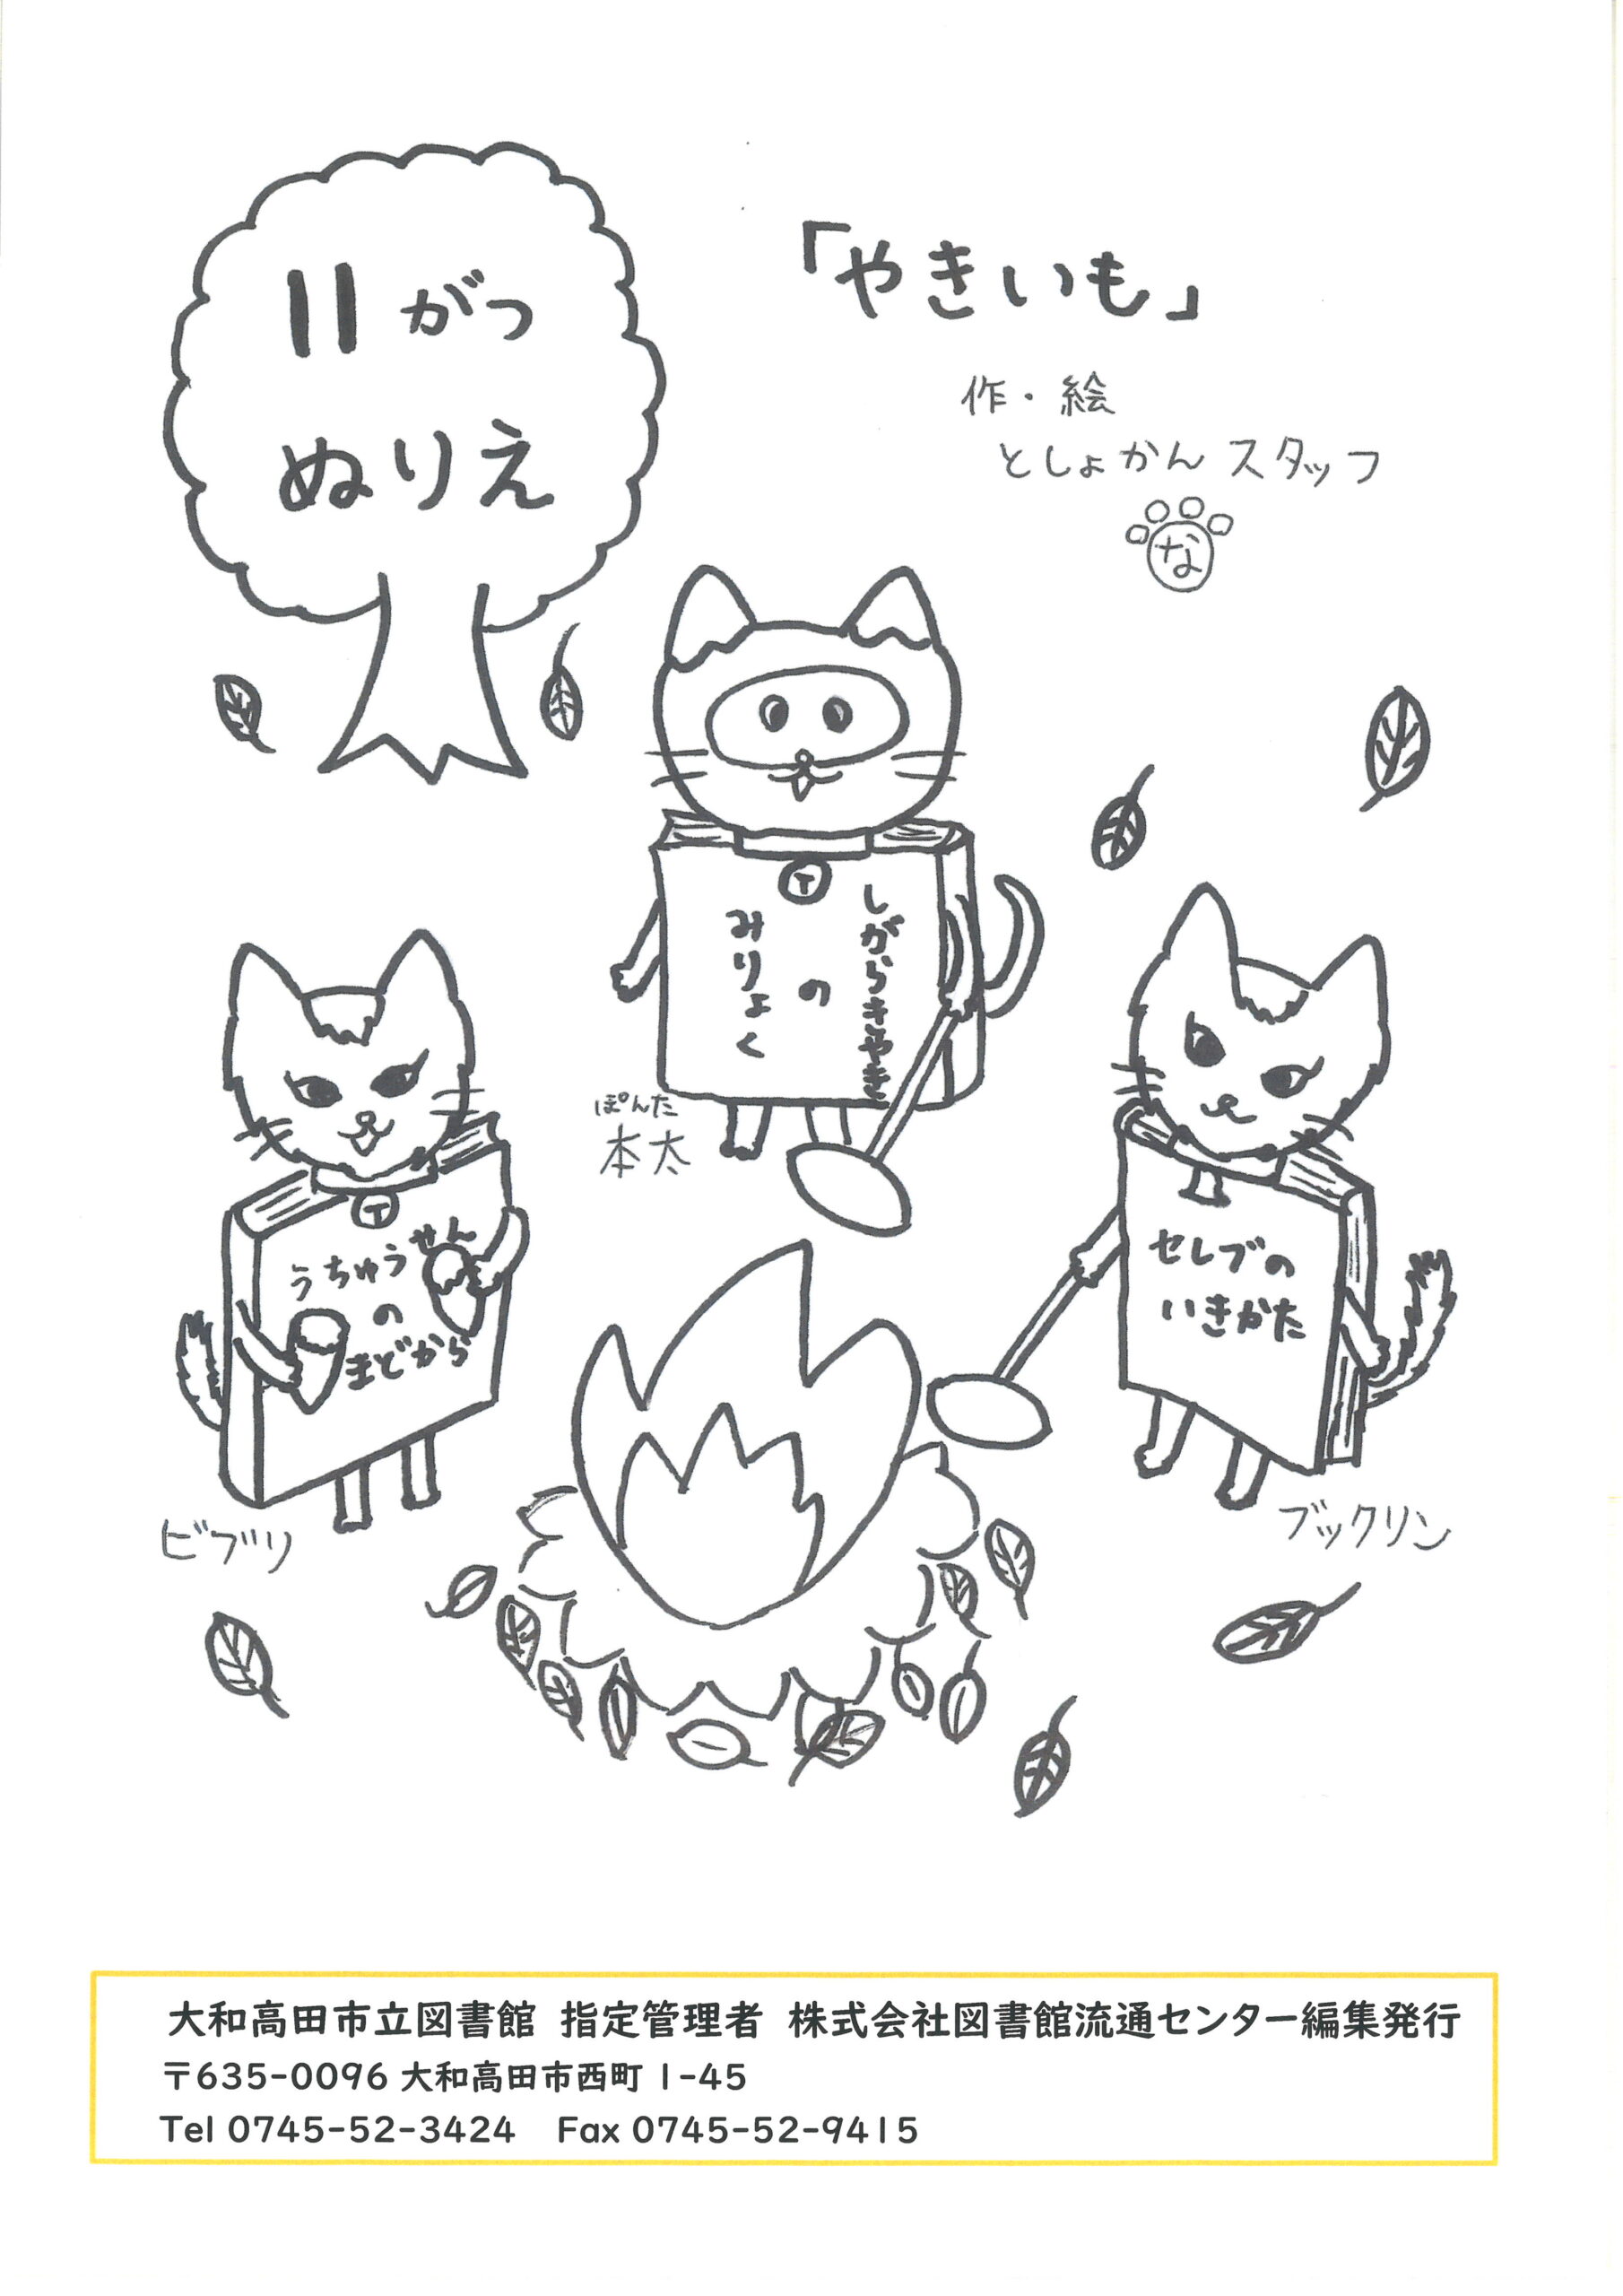 11がつ
ぬりえ
「やきいも」
作・絵
としょかんスタッフ
な
T
しがらきやき
の
みりょく
ぽんた
本太
T
うちゅうせん
の
まどから
ビブリ
セレブの
いきかた
ブックリン
大和高田市立図書館 指定管理者 株式会社図書館流通センター編集発行
〒635-0096 大和高田市西町 1-45
Tel 0745-52-3424 Fax 0745-52-9415